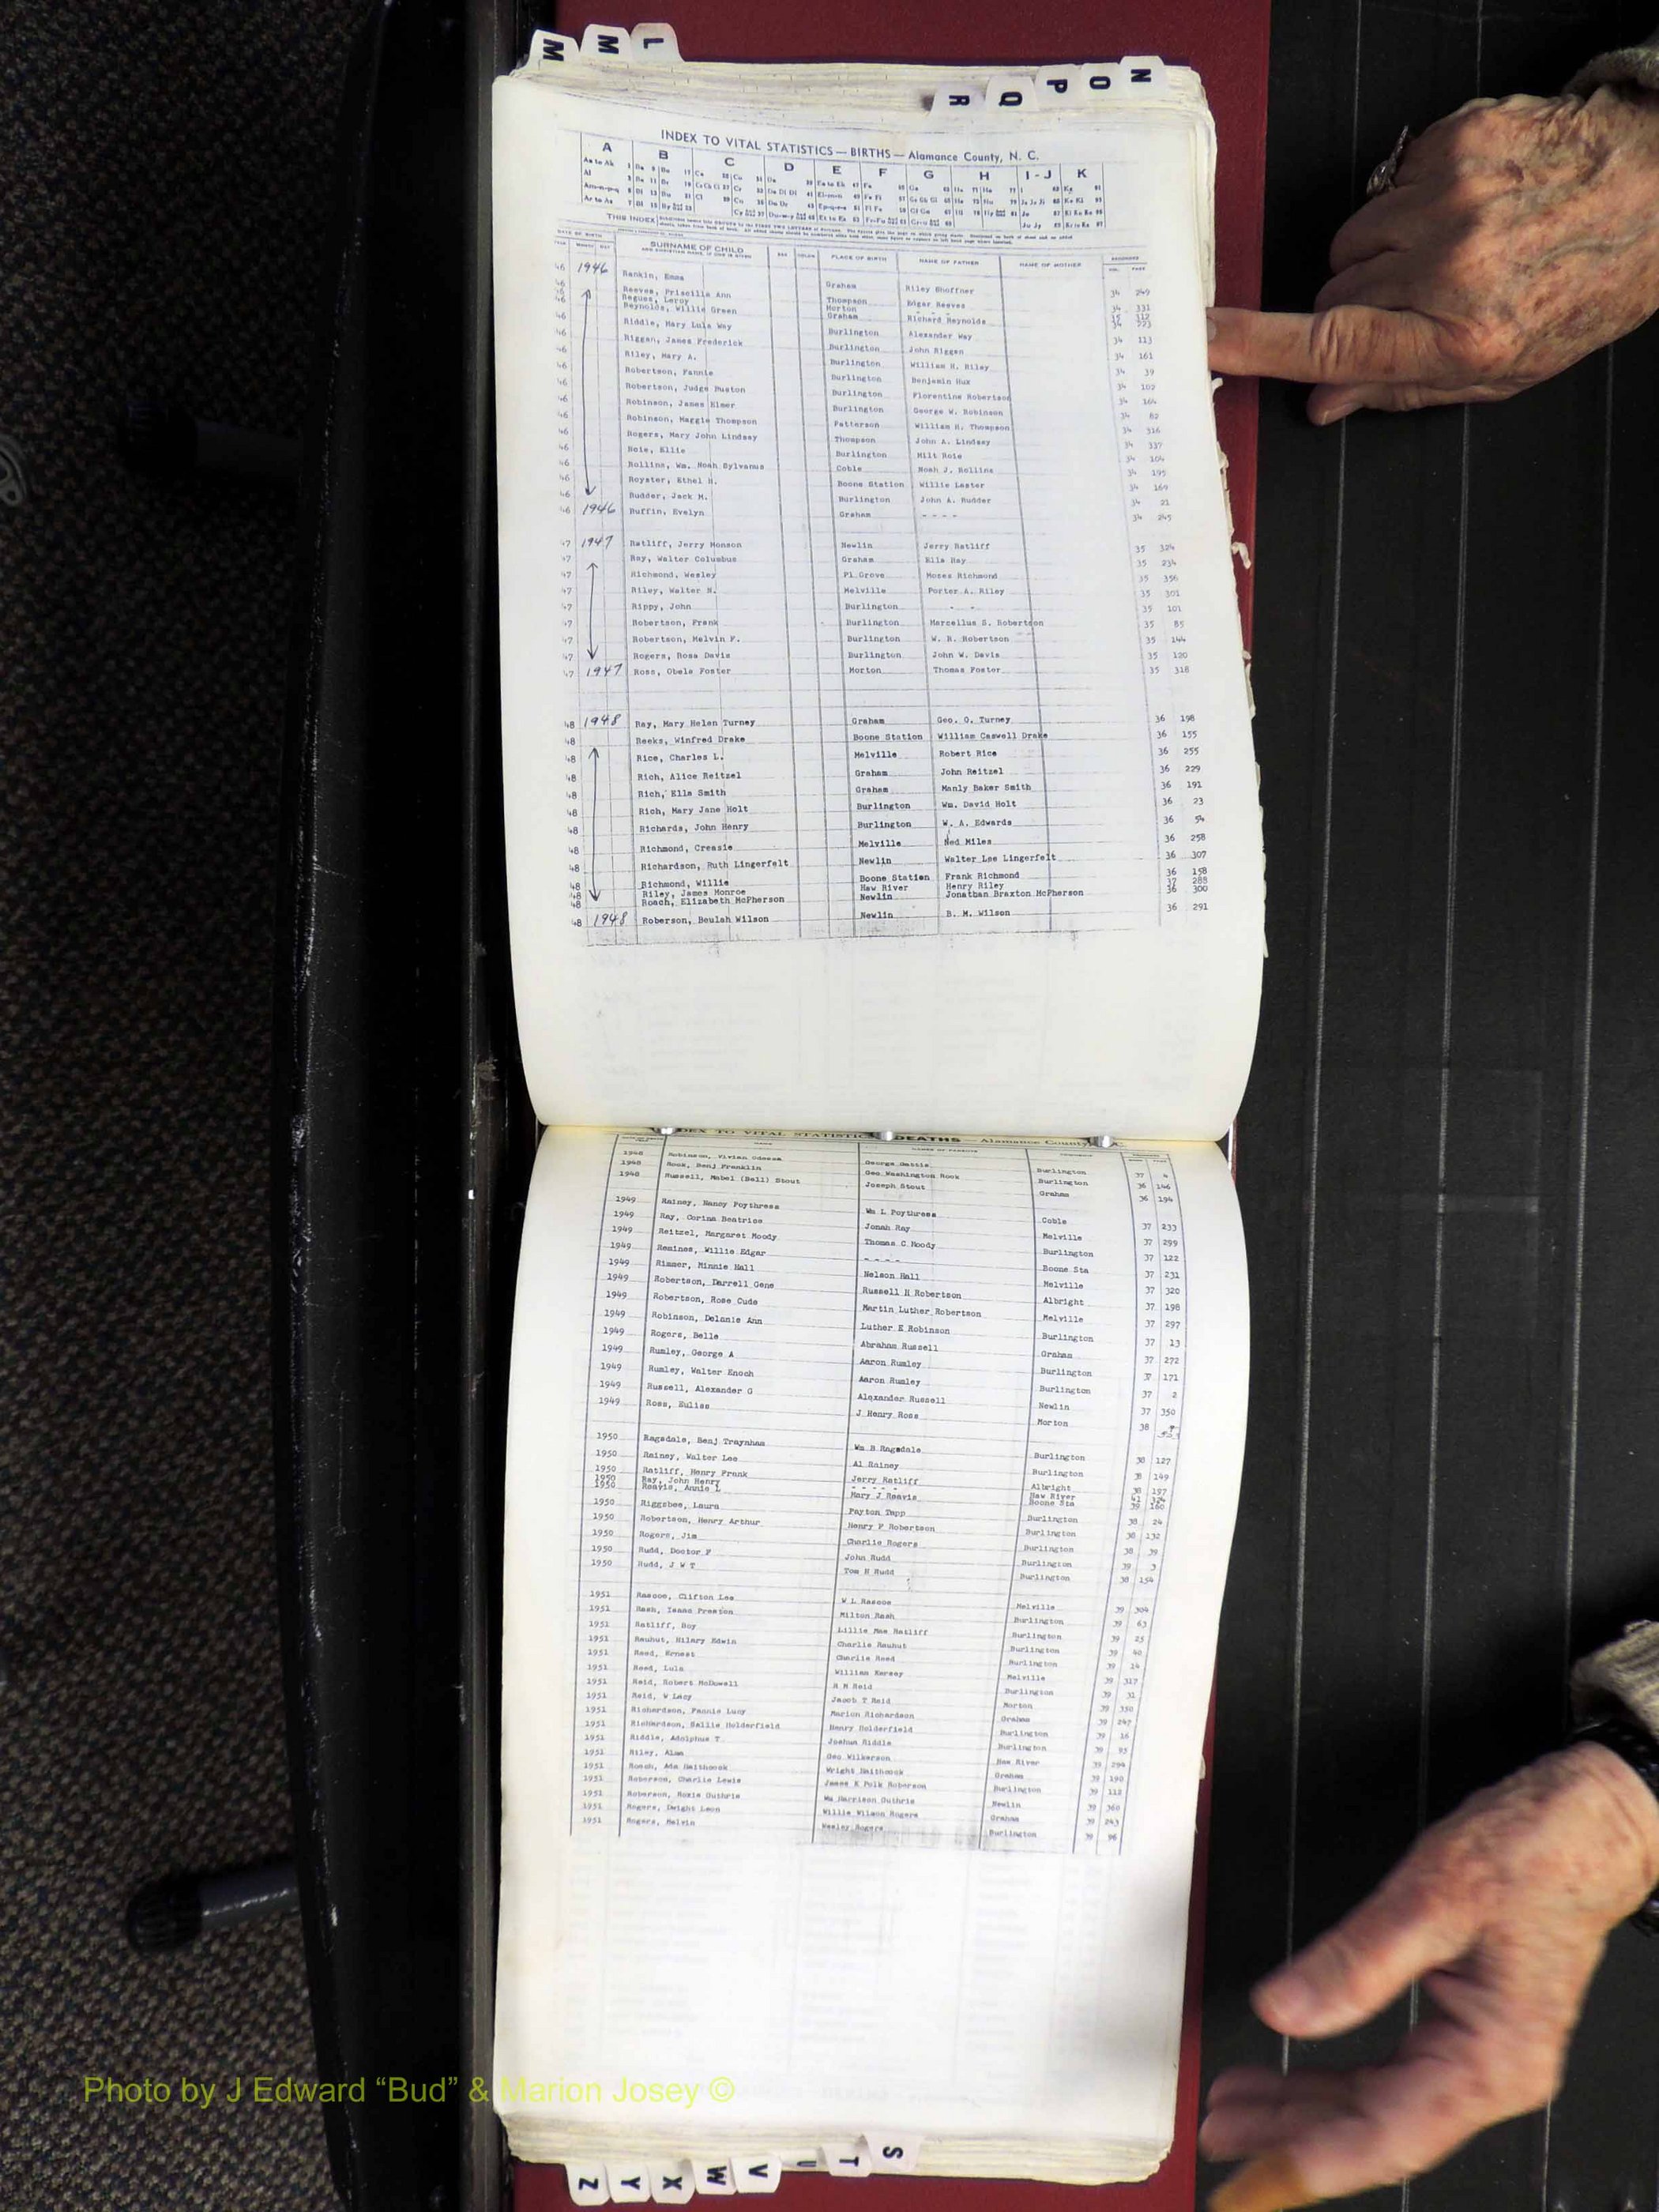 M M L
N O P Q R
INDEX TO VITAL STATISTICS — BIRTHS — Alamance County, N. C.
A B C D E F G H I - J K
THIS INDEX
DATE OF BIRTH SURNAME OF CHILD PLACE OF BIRTH NAME OF FATHER NAME OF MOTHER
46 1946 Rankin, Emma Graham Riley Shoffner 34 249
46 Reeves, Priscilla Ann Thompson Edgar Reeves 34 331
46 Regues, Leroy Morton - - - 35 312
46 Reynolds, Willie Green Graham Richard Reynolds 34 223
46 Riddle, Mary Lula Way Burlington Alexander Way 34 113
46 Riggan, James Frederick Burlington John Riggan 34 161
46 Riley, Mary A. Burlington William H. Riley 34 39
46 Robertson, Fannie Burlington Benjamin Hux 34 102
46 Robertson, Judge Buston Burlington Florentine Robertson 34 164
46 Robinson, James Elmer Burlington George W. Robinson 34 82
46 Robinson, Maggie Thompson Patterson William H. Thompson 34 316
46 Rogers, Mary John Lindsay Thompson John A. Lindsay 34 337
46 Roie, Ellie Burlington Milt Roie 34 104
46 Rollins, Wm. Noah Sylvanus Coble Noah J. Rollins 34 195
46 Royster, Ethel H. Boone Station Willie Laster 34 169
46 Rudder, Jack M. Burlington John A. Rudder 34 21
46 1946 Ruffin, Evelyn Graham - - - - 34 245
47 1947 Ratliff, Jerry Monson Newlin Jerry Ratliff 35 324
47 Ray, Walter Columbus Graham Ells Ray 35 234
47 Richmond, Wesley Pl.Grove Moses Richmond 35 356
47 Riley, Walter H. Melville Porter A. Riley 35 301
47 Rippy, John Burlington - - 35 101
47 Robertson, Frank Burlington Marcellus S. Robertson 35 85
47 Robertson, Melvin F. Burlington W. R. Robertson 35 144
47 Rogers, Rosa Davis Burlington John W. Davis 35 120
47 1947 Ross, Obele Foster Morton Thomas Foster 35 318
48 1948 Ray, Mary Helen Turney Graham Geo. O. Turney 36 198
48 Reeks, Winfred Drake Boone Station William Caswell Drake 36 155
48 Rice, Charles L. Melville Robert Rice 36 255
48 Rich, Alice Reitzel Graham John Reitzel 36 229
48 Rich, Ella Smith Graham Manly Baker Smith 36 191
48 Rich, Mary Jane Holt Burlington Wm. David Holt 36 23
48 Richards, John Henry Burlington W. A. Edwards 36 54
48 Richmond, Creasie Melville Ned Miles 36 258
48 Richardson, Ruth Lingerfelt Newlin Walter Lee Lingerfelt 36 307
48 Richmond, Willie Boone Station Frank Richmond 36 158
48 Riley, James Monroe Haw River Henry Riley 37 288
48 Roach, Elizabeth McPherson Newlin Jonathan Braxton McPherson 36 300
48 1948 Roberson, Beulah Wilson Newlin B. M. Wilson 36 291
INDEX TO VITAL STATISTICS — DEATHS — Alamance County
1948 Robinson, Vivian Odessa George Gattis Burlington 37 4
1948 Rook, Benj Franklin Geo Washington Rook Burlington 36 146
1948 Russell, Mabel (Bell) Stout Joseph Stout Graham 36 194
1949 Rainey, Nancy Poythress Wm L Poythress Coble 37 233
1949 Ray, Corina Beatrice Jonah Ray Melville 37 299
1949 Reitzel, Margaret Moody Thomas C Moody Burlington 37 122
1949 Remines, Willie Edgar - - - - Boone Sta 37 231
1949 Rimmer, Minnie Hall Nelson Hall Melville 37 320
1949 Robertson, Darrell Gene Russell H Robertson Albright 37 198
1949 Robertson, Rose Cude Martin Luther Robertson Melville 37 297
1949 Robinson, Delanie Ann Luther E Robinson Burlington 37 13
1949 Rogers, Belle Abraham Russell Graham 37 272
1949 Rumley, George A Aaron Rumley Burlington 37 171
1949 Rumley, Walter Enoch Aaron Rumley Burlington 37 2
1949 Russell, Alexander G Alexander Russell Newlin 37 350
1949 Ross, Euliss J Henry Ross Morton 38
1950 Ragsdale, Benj Traynham Wm B Ragsdale Burlington 38 127
1950 Rainey, Walter Lee Al Rainey Burlington 38 149
1950 Ratliff, Henry Frank Jerry Ratliff Albright 38 197
1950 Ray, John Henry - - - - - Haw River 41 324
1950 Reavis, Annie L Mary J Reavis Boone Sta 39 160
1950 Riggsbee, Laura Payton Tapp Burlington 38 24
1950 Robertson, Henry Arthur Henry F Robertson Burlington 38 132
1950 Rogers, Jim Charlie Rogers Burlington 38 39
1950 Rudd, Doctor F John Rudd Burlington 39 3
1950 Rudd, J W T Tom H Rudd Burlington 38 154
1951 Rascoe, Clifton Lee W L Rascoe Melville 39 304
1951 Rash, Isaac Preston Milton Rash Burlington 39 63
1951 Ratliff, Boy Lillie Mae Ratliff Burlington 39 25
1951 Rauhut, Hilary Edwin Charlie Rauhut Burlington 39 40
1951 Reed, Ernest Charlie Reed Burlington 39 14
1951 Reed, Lula William Kersey Melville 39 317
1951 Reid, Robert McDowell R M Reid Burlington 39 31
1951 Reid, W Lacy Jacob T Reid Morton 39 350
1951 Richardson, Fannie Lucy Marion Richardson Graham 39 247
1951 Richardson, Sallie Holderfield Henry Holderfield Burlington 39 16
1951 Riddle, Adolphus T Joshua Riddle Burlington 39 95
1951 Riley, Alma Geo Wilkerson Haw River 39 294
1951 Roach, Ada Haithcock Wright Haithcock Graham 39 190
1951 Roberson, Charlie Lewis James K Polk Roberson Burlington 39 112
1951 Roberson, Roxie Guthrie Wm Harrison Guthrie Newlin 39 360
1951 Rogers, Dwight Leon Willie Wilson Rogers Graham 39 243
1951 Rogers, Melvin Wesley Rogers Burlington 39 96
Photo by J Edward “Bud” & Marion Josey ©
Z Y X W V U T S